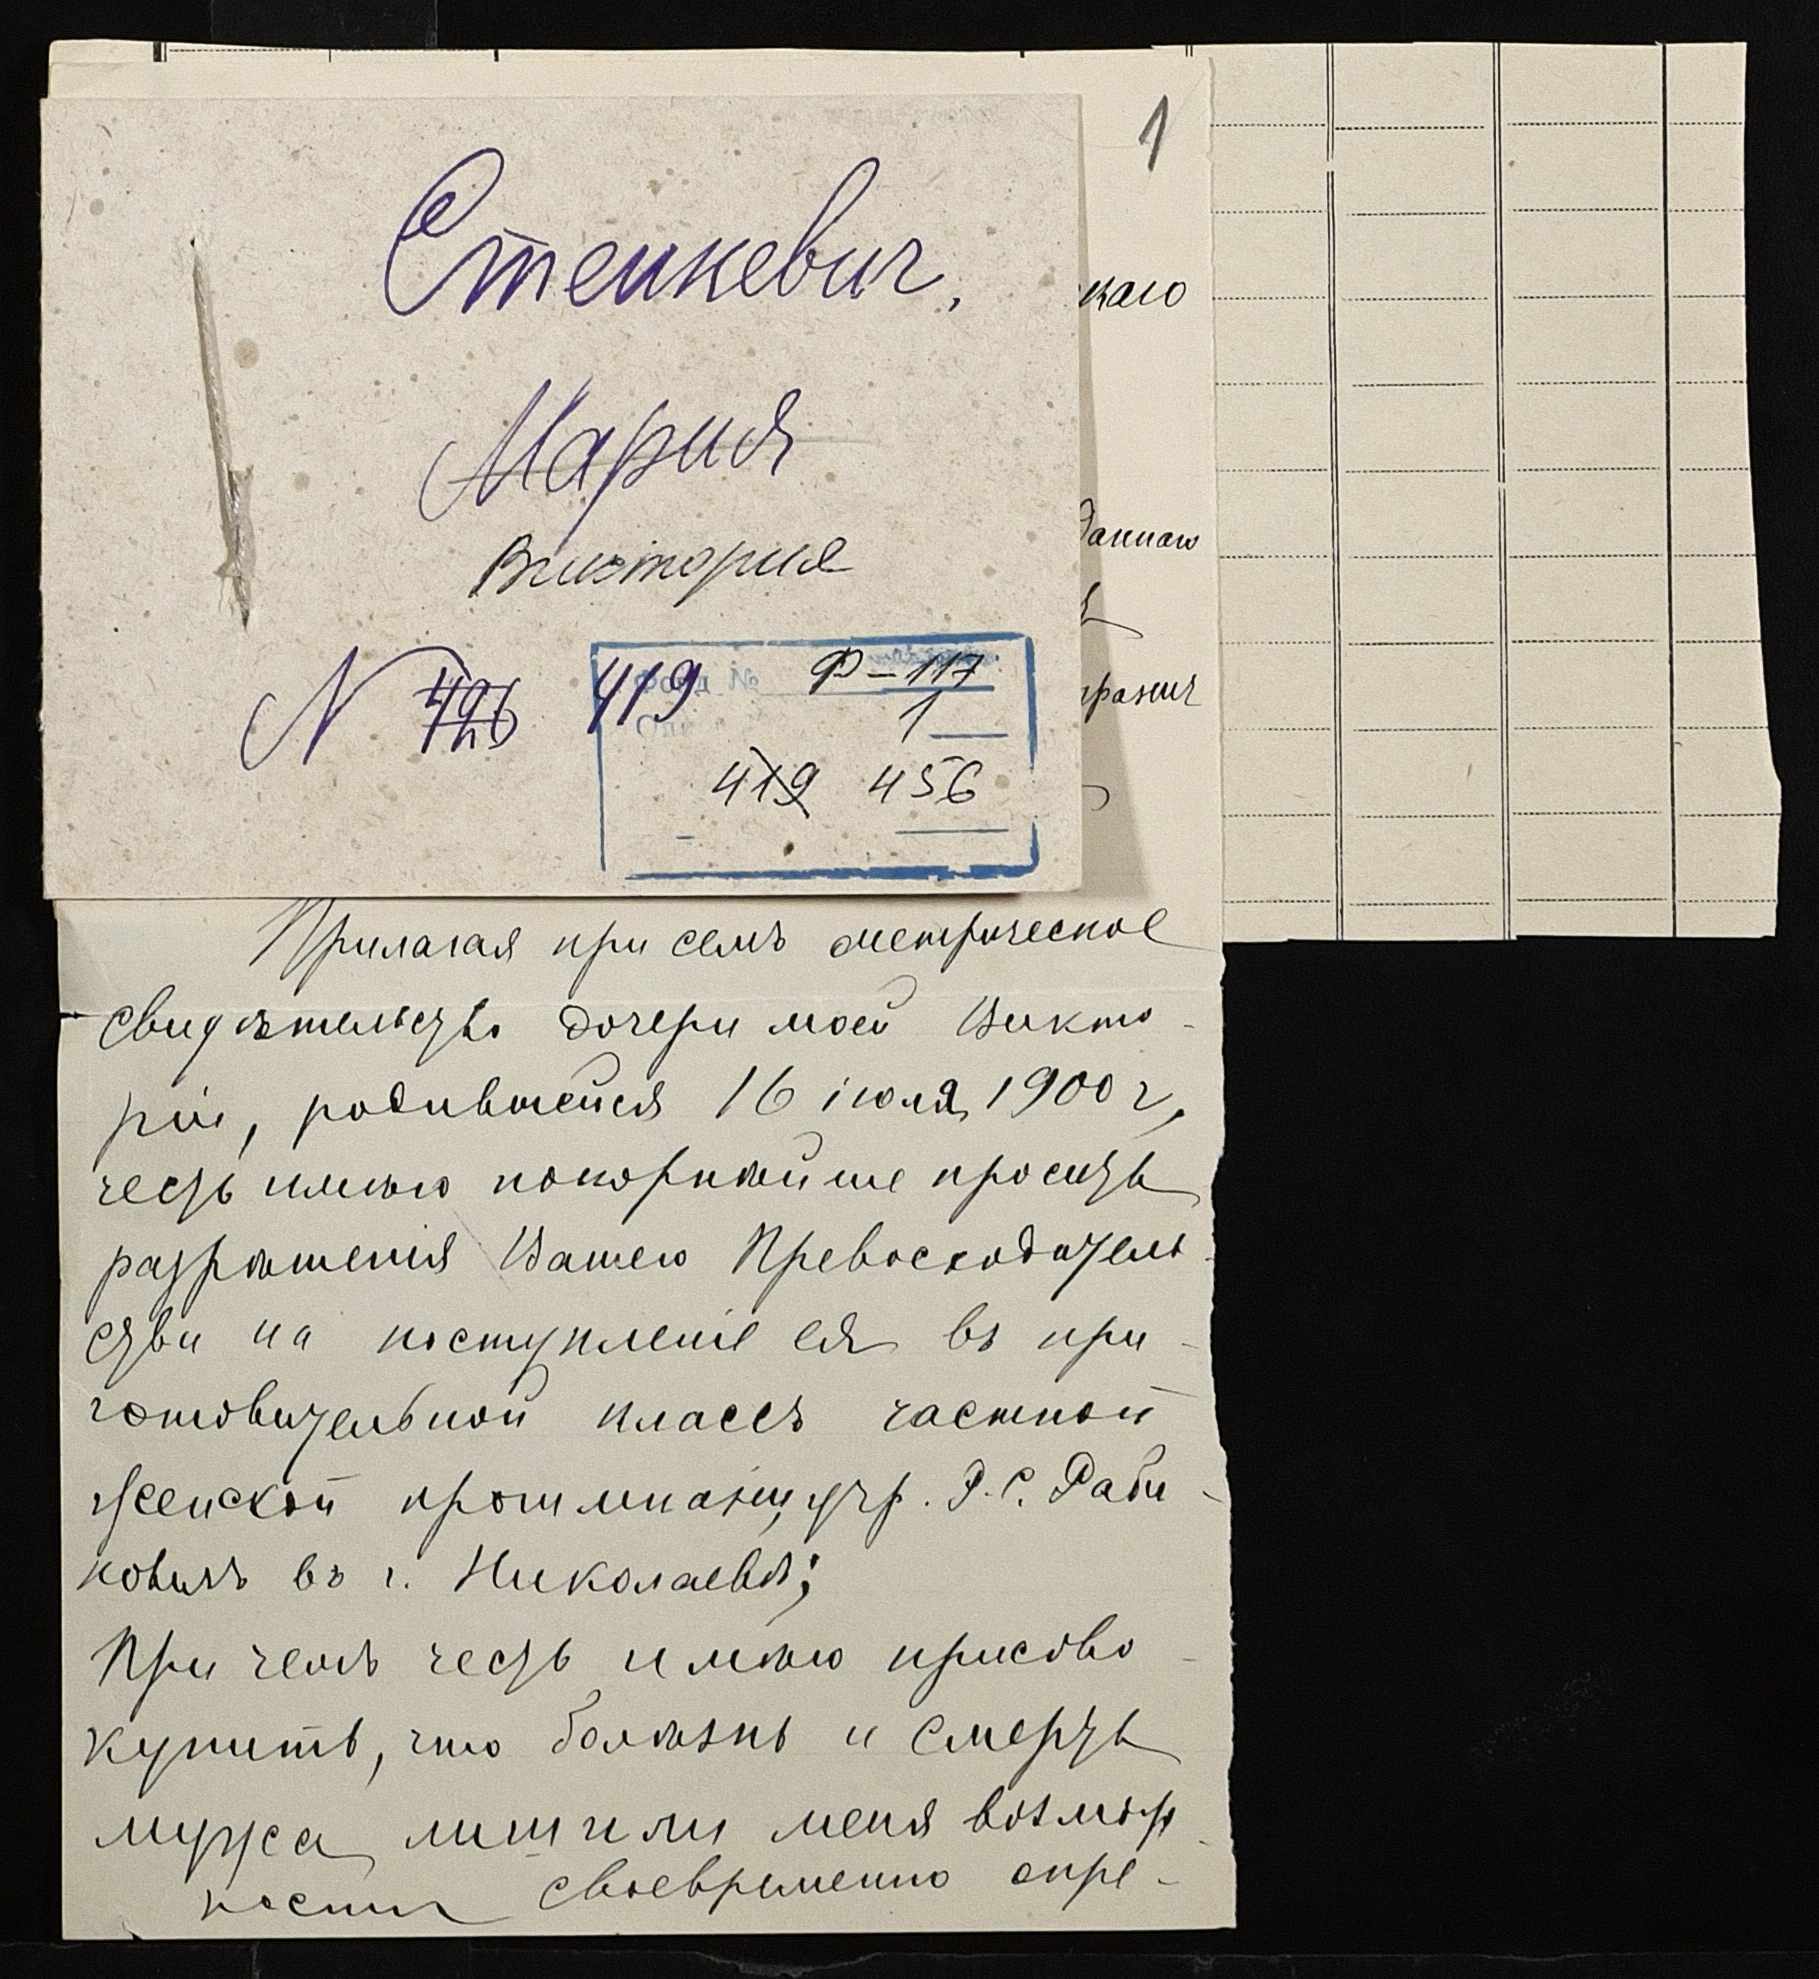 1
Стенкевич,
Мария
Виктория
N 496 419
Ф-117
1
419 456
каго
даннаго
Прилагая при семъ метрическое
свидѣтельство дочери моей Викто-
ріи, родившейся 16 іюля 1900 г,
честь имѣю покорнѣйше просить
разрѣшенія Вашего Превосходитель-
ства на поступленіе ея въ при-
готовительной классъ частной
женской прогимназіи, учр. Р. С. Раби-
новичъ въ г. Николаевѣ;
При чемъ честь имѣю присово-
купить, что болѣзнь и смерть
мужа лишили меня возмож-
ности своевременно опре-